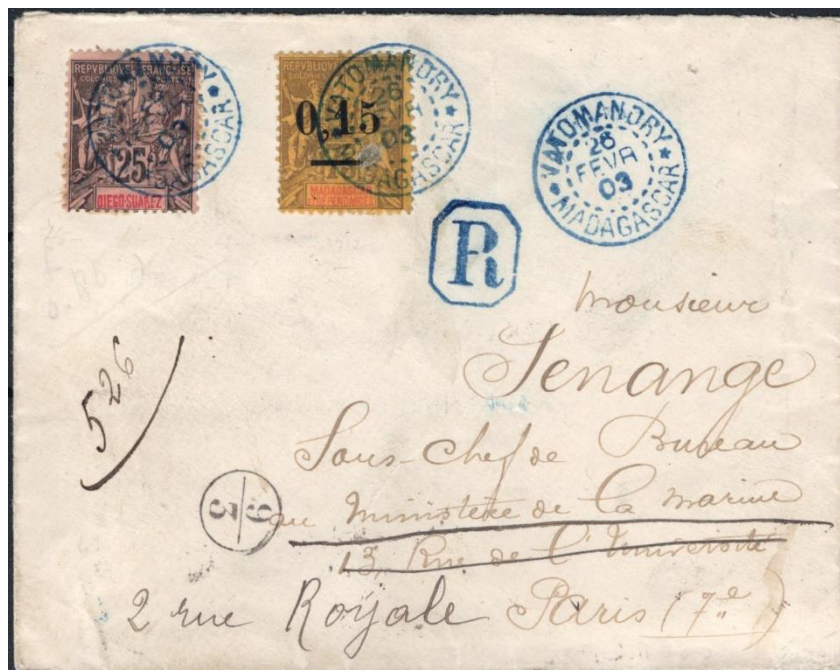 REPVBLIQVE FRANÇAISE
COLONIES
25
DIEGO-SUAREZ
REPVBLIQVE
0,15
MADAGASCAR
VATOMANDRY
03
MADAGASCAR
VATOMANDRY
26
03
MADAGASCAR
VATOMANDRY
26
FEVR
03
MADAGASCAR
R
526
9
3
Monsieur
Senange
Sous-Chef de Bureau
au Ministère de la Marine
13, Rue de l'Université
2 rue Royale Paris (7e)